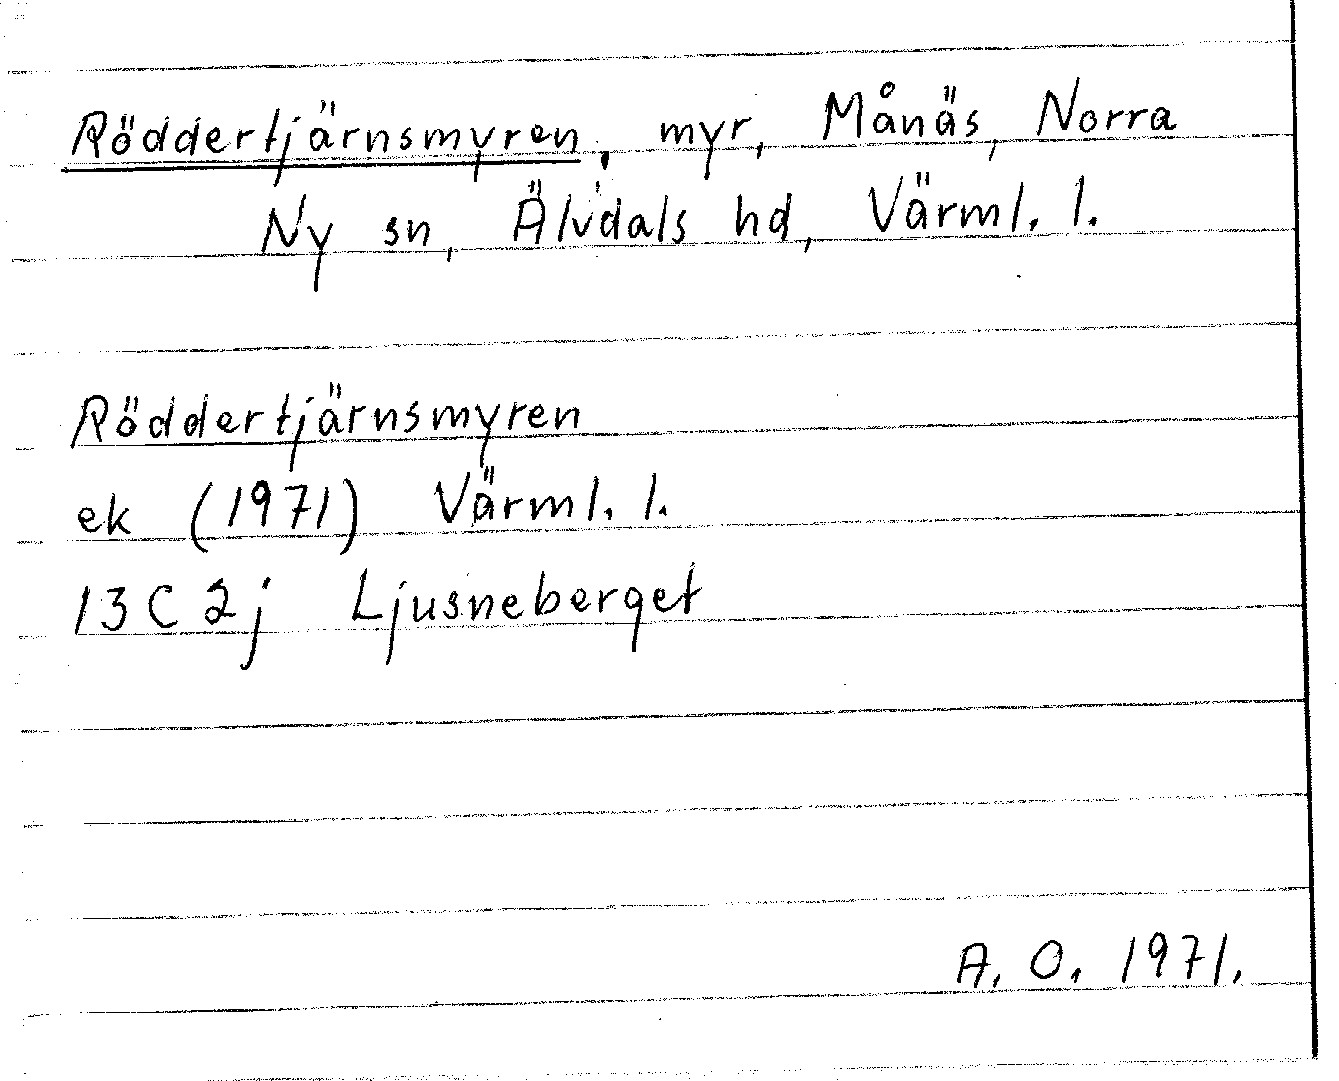 Röddertjärnsmyren, myr, Månäs, Norra
Ny sn, Älvdals hd, Värml. l.
Röddertjärnsmyren
ek (1971) Värml. l.
13C 2j Ljusneberget
A. O. 1971.